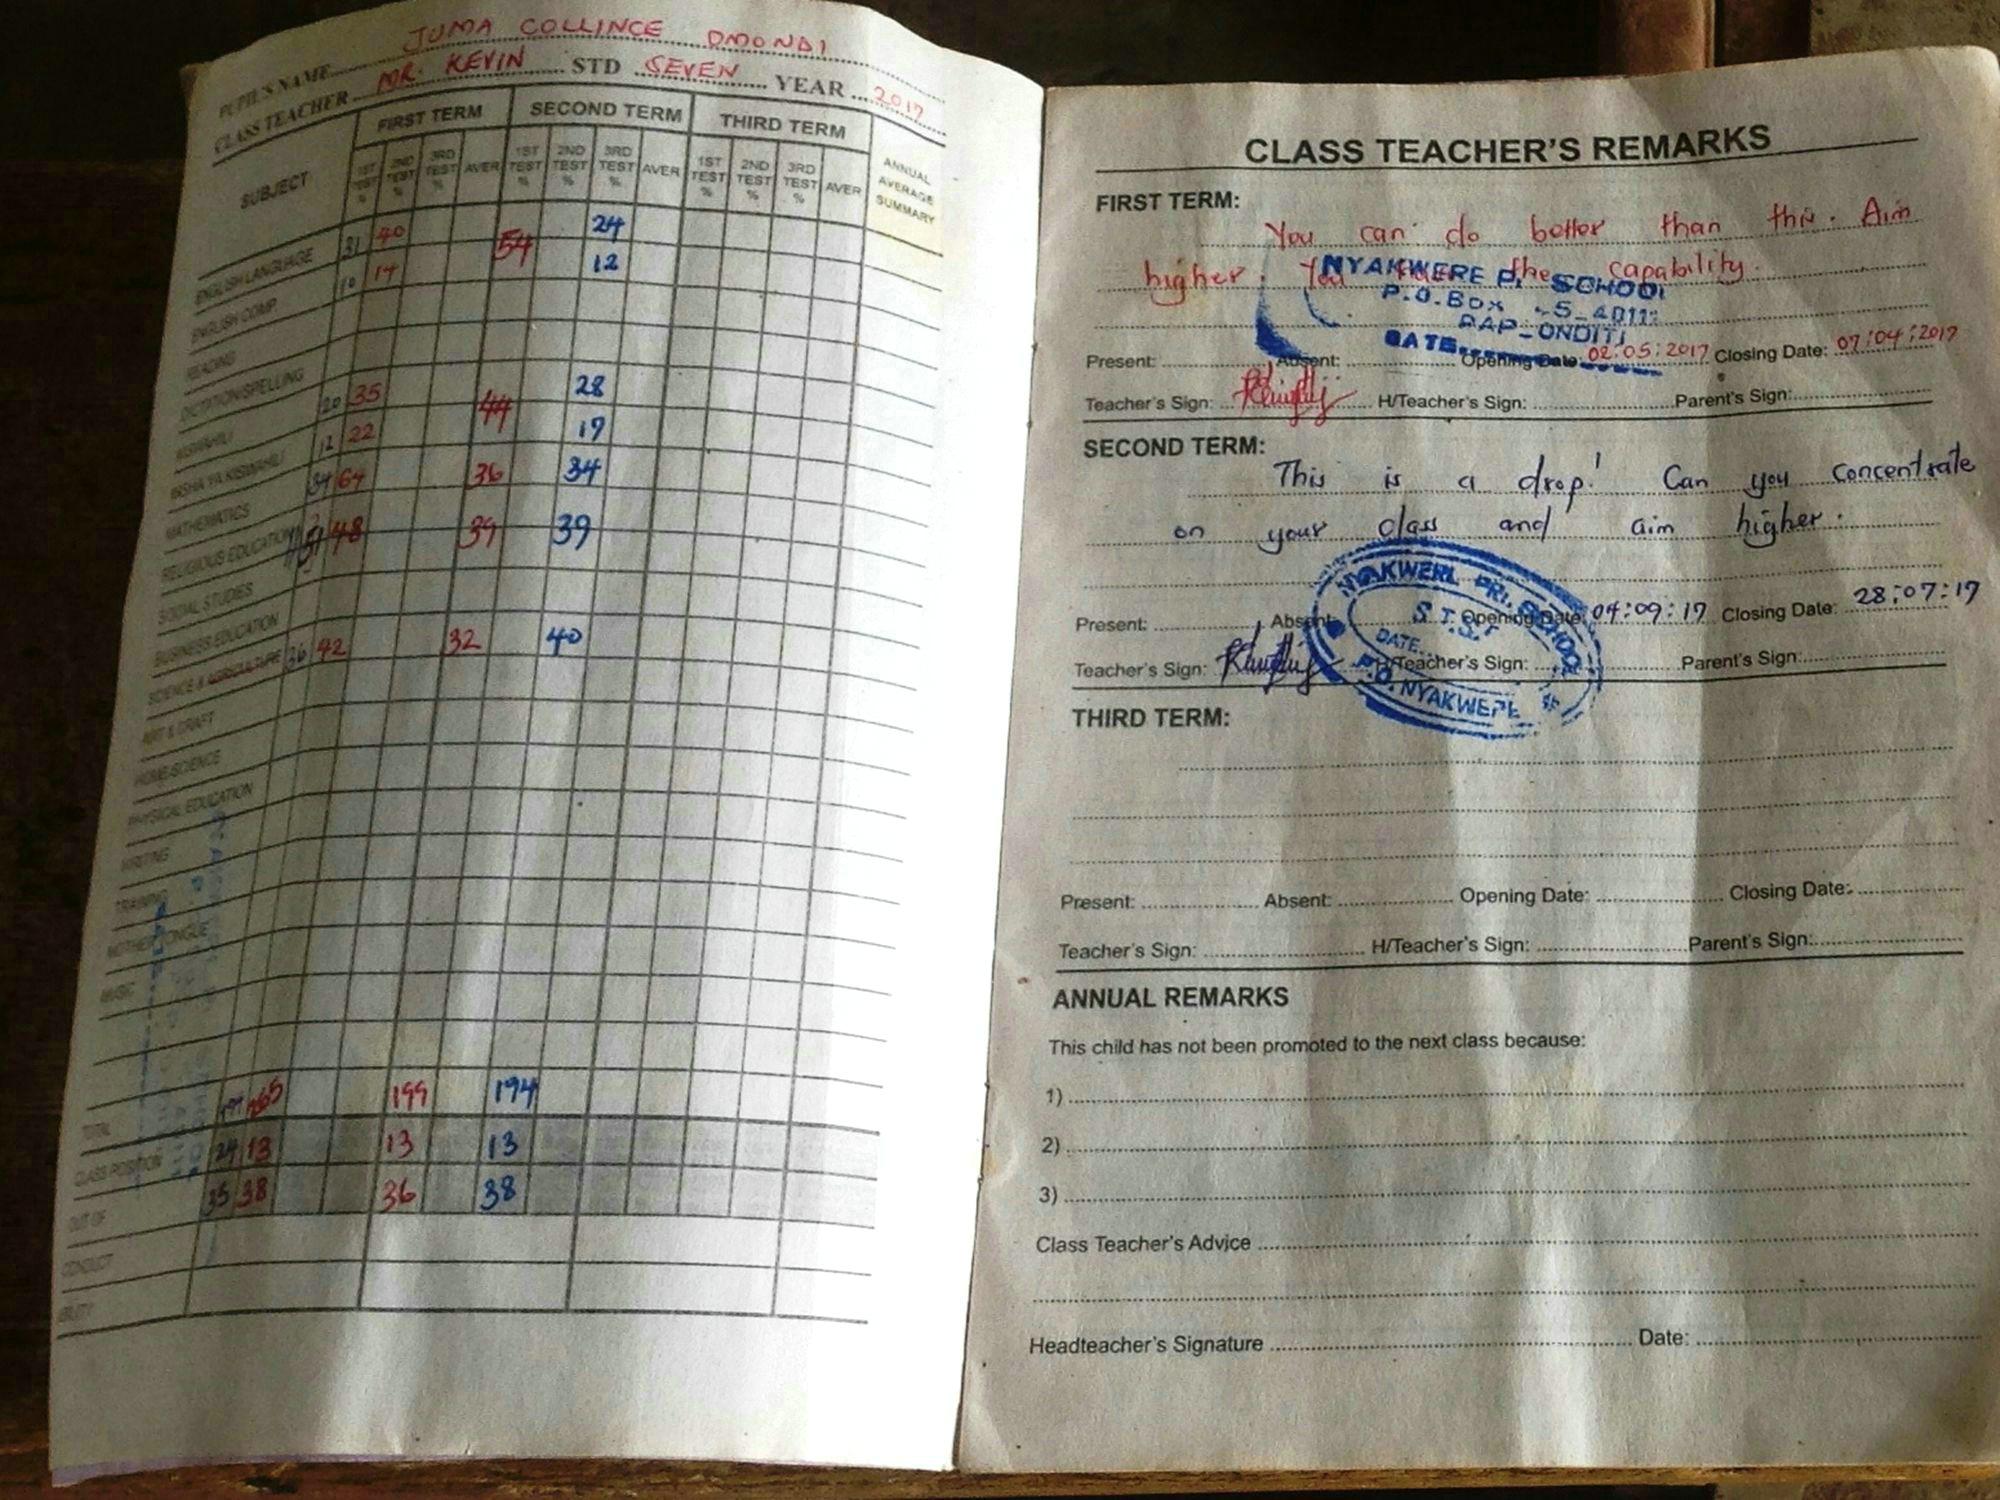 PUPIL'S NAME JUMA COLLINCE OMONDI
CLASS TEACHER MR. KEVIN STD SEVEN YEAR 2017
SUBJECT FIRST TERM SECOND TERM THIRD TERM ANNUAL AVERAGE SUMMARY
1ST TEST % 2ND TEST % 3RD TEST % AVER 1ST TEST % 2ND TEST % 3RD TEST % AVER 1ST TEST % 2ND TEST % 3RD TEST % AVER
ENGLISH LANGUAGE 31 40 54 24
ENGLISH COMP. 10 14 12
READING
DICTATION/SPELLING
KISWAHILI 20 35 44 28
INSHA YA KISWAHILI 12 22 19
MATHEMATICS 34 64 36 34
RELIGIOUS EDUCATION 48 39 39
SOCIAL STUDIES
BUSINESS EDUCATION
SCIENCE & AGRICULTURE 36 42 32 40
ART & CRAFT
HOME SCIENCE
PHYSICAL EDUCATION
WRITING
TRAINING
MOTHER TONGUE
MUSIC
TOTAL 265 199 194
CLASS POSITION 24 13 13 13
OUT OF 35 38 36 38
CONDUCT
ABILITY
CLASS TEACHER'S REMARKS
FIRST TERM:
You can do better than this. Aim
higher. You the capability.
NYAKWERE P. SCHOOL
P.O. Box
RAP-ONDITI
DATE
Present: Absent: Opening Date: 02:05:2017 Closing Date: 07:04:2017
Teacher's Sign: H/Teacher's Sign: Parent's Sign:
SECOND TERM:
This is a drop! Can you concentrate
on your class and aim higher.
NYAKWERE PRI. SCHOOL
DATE
P.O. NYAKWERE
Present: Absent: Opening Date: 04:09:17 Closing Date: 28:07:17
Teacher's Sign: H/Teacher's Sign: Parent's Sign:
THIRD TERM:
Present: Absent: Opening Date: Closing Date:
Teacher's Sign: H/Teacher's Sign: Parent's Sign:
ANNUAL REMARKS
This child has not been promoted to the next class because:
1)
2)
3)
Class Teacher's Advice
Headteacher's Signature Date: